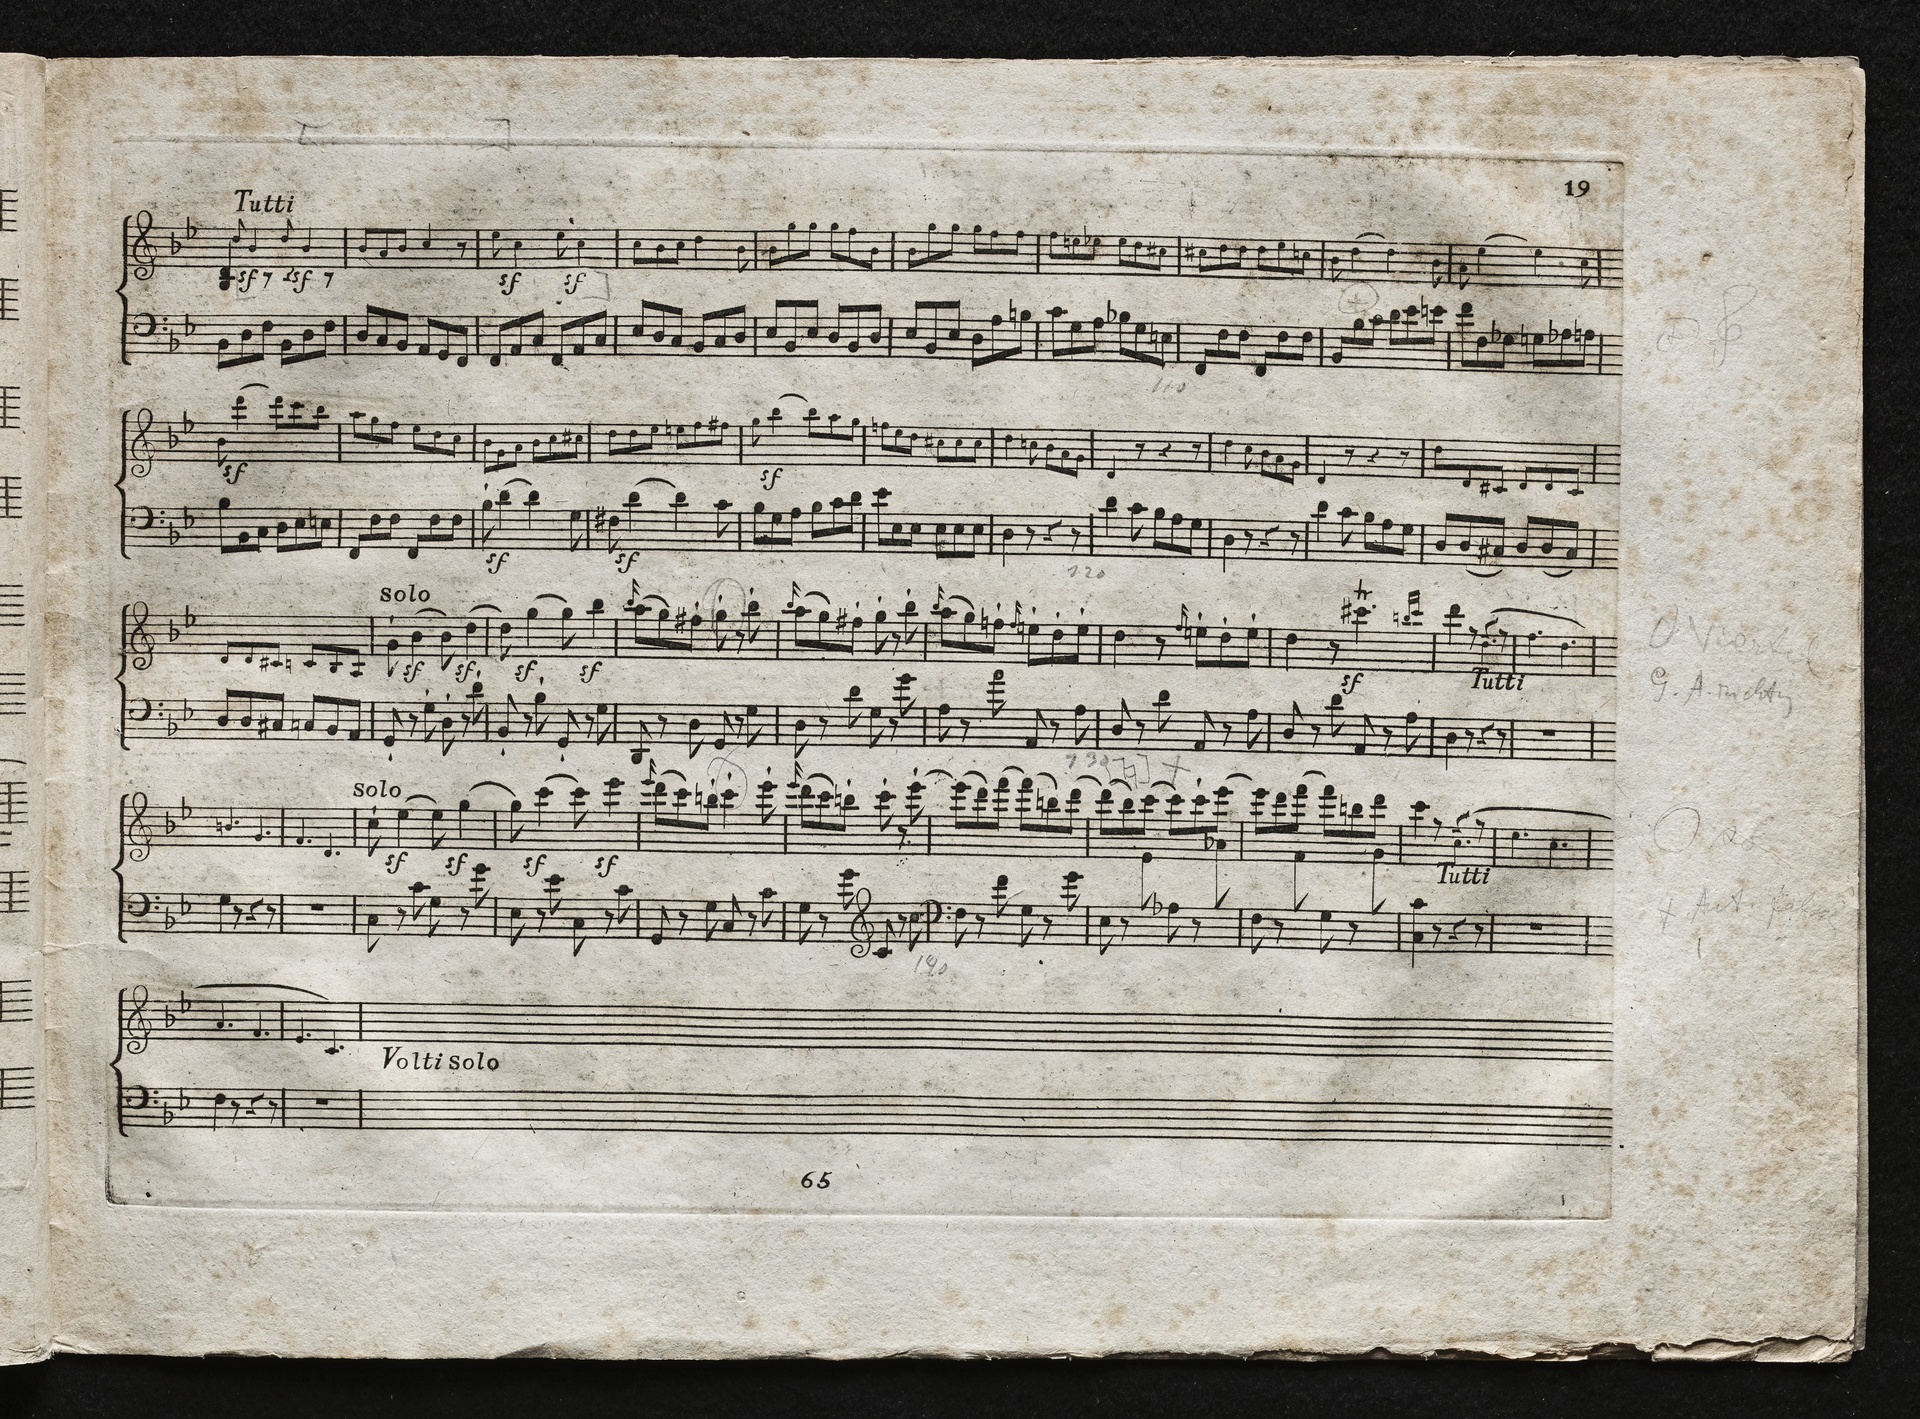 19
Tutti
sf sf sf sf
110
sf sf
sf sf
120
solo
sf sf sf sf sf
Tutti
G. A.
130
solo
sf sf sf sf
Tutti
140
Volti solo
65